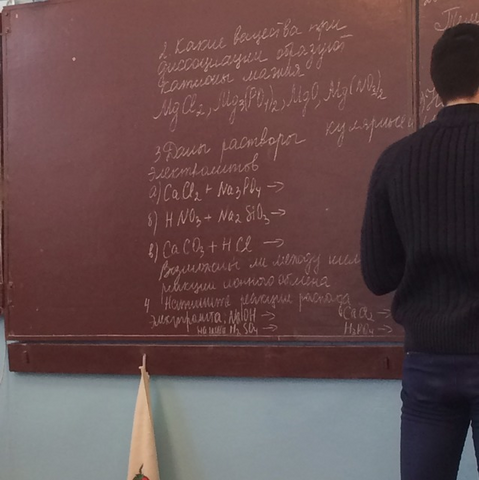 2 Какие вещества при
диссоциации образуют
катионы магния
MgCl2, Mg3(PO4)2, MgO, Mg(NO3)2
3 Даны растворы
электролитов
а) CaCl2 + Na3PO4 →
б) HNO3 + Na2SiO3 →
в) CaCO3 + HCl →
Возможны ли между ними
реакции ионного обмена
4 Напишите реакцию распада
электролита: NaOH → CaCl2 →
H2SO4 → H3PO4 →